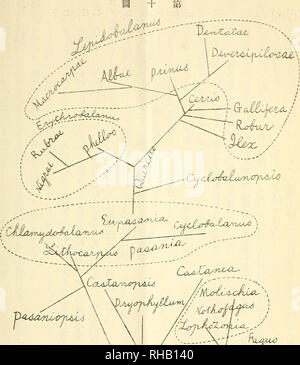 圖 十 第
Lepidobalanus
Dentatae
Diversipilosae
Macrocarpae
Albae
Prinus
Cerris
Gallifera
Robur
Ilex
Erythrobalanus
Rubrae
Phellos
Nigrae
Quercus
Cyclobalanopsis
Eupasania
Cyclobalanus
Chlamydobalanus
Lithocarpus
Pasania
Castanea
Castanopsis
Dryophyllum
Molischia
Nothofagus
Lophozonia
Pasaniopsis
Fagus
alamy
RHB140